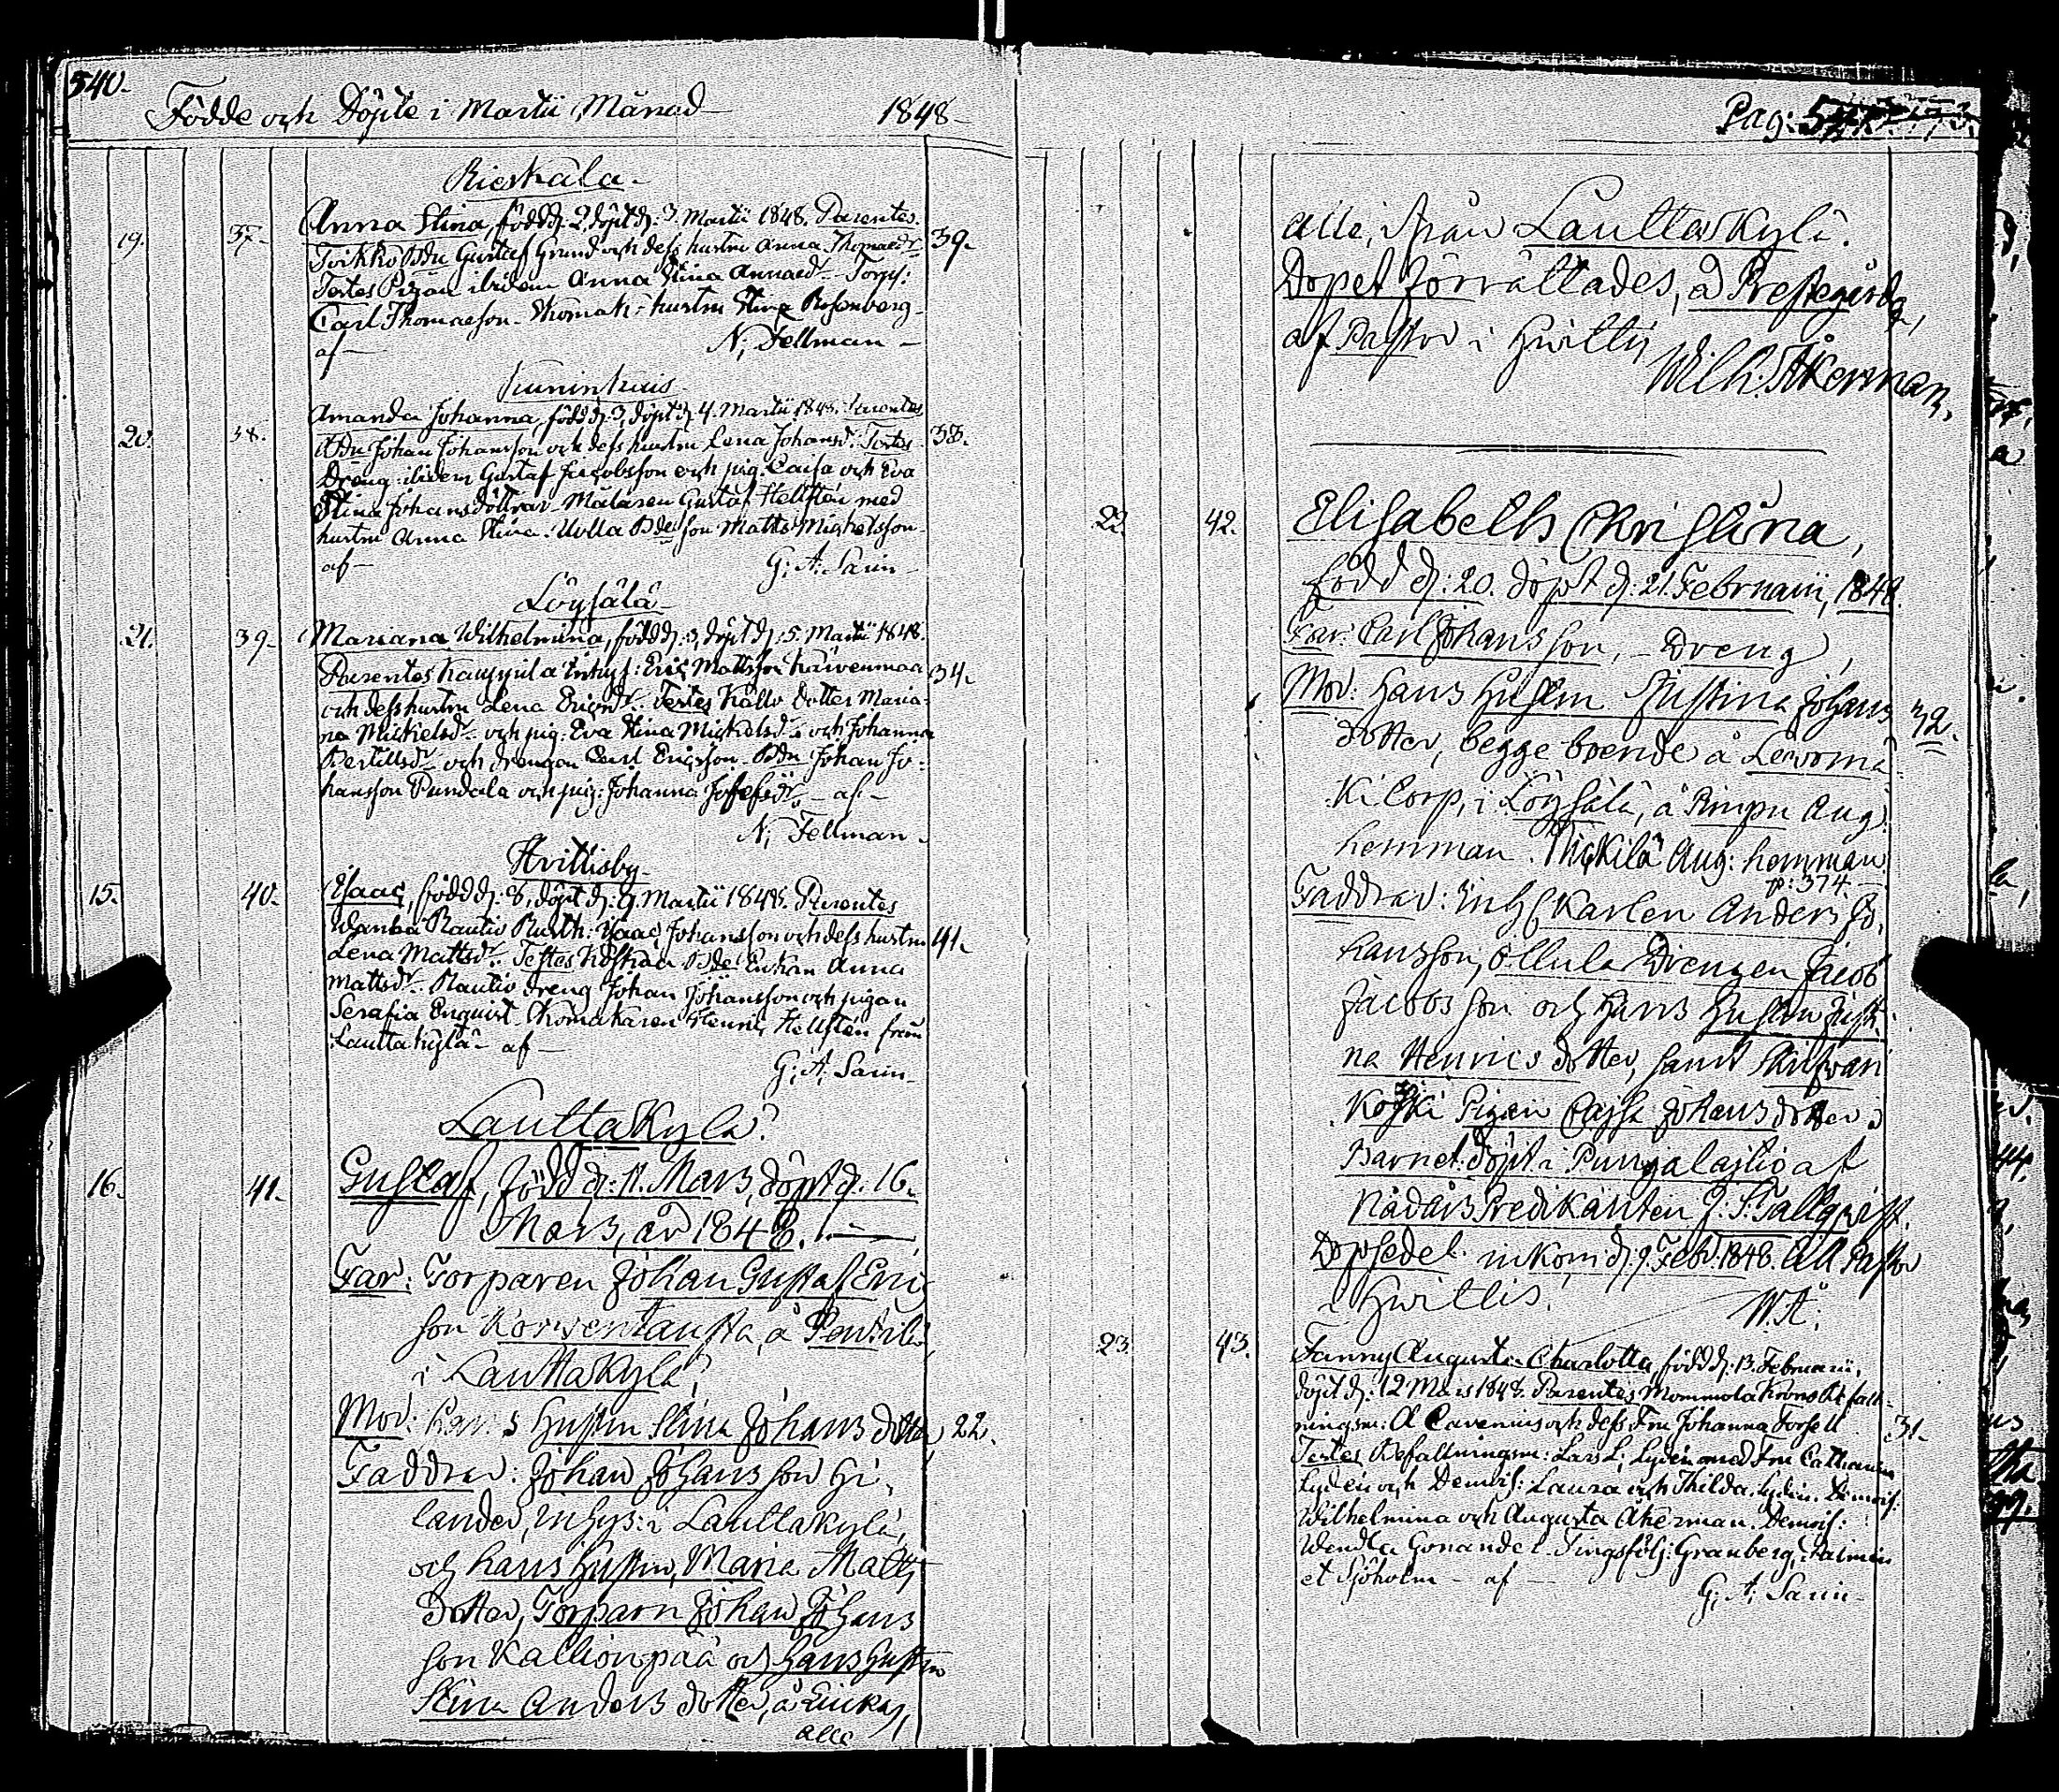 540.
Födde och Döpte i Martii Månad 1848
Rieskala
19. 37. Anna Stina, född d: 2, döpt d: 3. Martii 1848. Parentes 39.
Torkko Bdn Gustaf Grund och dess hustru Anna Thomaedr
Testes Pigan ibidem Anna Stina Annaedr Torp:
Carl Thomaeson hustru Stina Rosenberg
af N: Fellman
Kuninkais
20. 38. Amanda Johanna, född d: 3, döpt d: 4. Martii 1848. Parentes
Bdn Johan Johansson och dess hustru Lena Johansdr. Testes 38.
Dreng ibidem Gustaf Jacobsson och pig. Caisa och Eva
Stina Johansdöttrar Målaren Gustaf Hellsten med
hustru Anna Stina. Uolla Bde son Matts Michelsson
af G: A: Sarin
Löysälä
21. 39. Mariana Wilhelmina, född d: 3, döpt d: 5. Martii 1848.
Parentes Kauppila Inhys: Eric Mattsson Karvenmaa 34.
och dess hustru Lena Ericsdr. Testes Kallo Dotter Maria-
na Mickelsdr och pig: Eva Stina Mickelsdr och Johanna
Bertillsdr och drengen Carl Ericsson Bdn Johan Jo-
hansson Pundala och pig: Johanna Josefsdr. af
N: Fellman
Hvittisby
15. 40. Isaac, född d: 8, döpt d: 9. Martii 1848. Parentes
Wanha Rautio Rusth: Isaac Johansson och dess hustru 41.
Lena Mattsdr. Testes Bde Enkan Anna
Mattsdr. Rautio dreng Johan Johansson och pigan
Serafia Enqvist Henric Hellsten från
Lauttakylä af
G: A: Sarin
Lauttakylä
16. 41. Gustaf, född d: 11. Mars, döpt d: 16.
Mars, år 1848.
Far: Torparen Johan Gustaf Eric
son Korventausta, å Penttilä
i Lauttakylä
Mor: Hans Hustru Stina Johans dotter 22.
Faddrar: Johan Johans son Hi-
lander, Inhys: i Lauttakylä,
och hans Hustru, Maria Matts
dotter, Torparn Johan Johans
son Kallionpää och Hans Hustru
Stina Anders dotter, å
alle
Pag:
alle, ifrån Lauttakylä.
Dopet förrättades, å Prestegård,
af Pastor i Hvittis
Wilh: Åkerman.
22. 42. Elisabeth Christina,
född d: 20. döpt d: 21. Februarii, 1848.
Far: Carl Johans son, Dreng,
Mor: Hans Hustru Justina Johans 32.
dotter, begge boende å Levomä
ki torp, i Löysälä, å Rimpu Aug
hemman. Aug: hemman
p: 374.
Faddrar: Inhs Karlen Anders Jo-
hansson, Ollula Drengen Jacob
Jacobs son och Hans Hustru Justi-
na Henrics dotter, samt
Koski Pigan Cajsa Johans dotter.
Barnet döpt i Pungalajtio af
Nådårs Predikanten J. S. Tallqvist.
Dopsedel inkom d: 9. Febr. 1848. till Pastor
i Hvittis.
W.Å.
23. 43. Fanny Augusta Charlotta född d: 13. Februarii,
döpt d: 12 Mars 1848. Parentes Mommola Krono Befall-
ningsm: A Cavenius och dess Fru Johanna Forsell 31.
Testes Befallningsm: Lars L: Lydén med Fru Catharina
Lydén och Demois: Laura och Thilda Lydén. Demois:
Wilhelmina och Augusta Åkerman. Demois:
Wendla Gonander. Tingsfölj: Granberg, Palmén
et Sjöholm af
G: A: Sarin